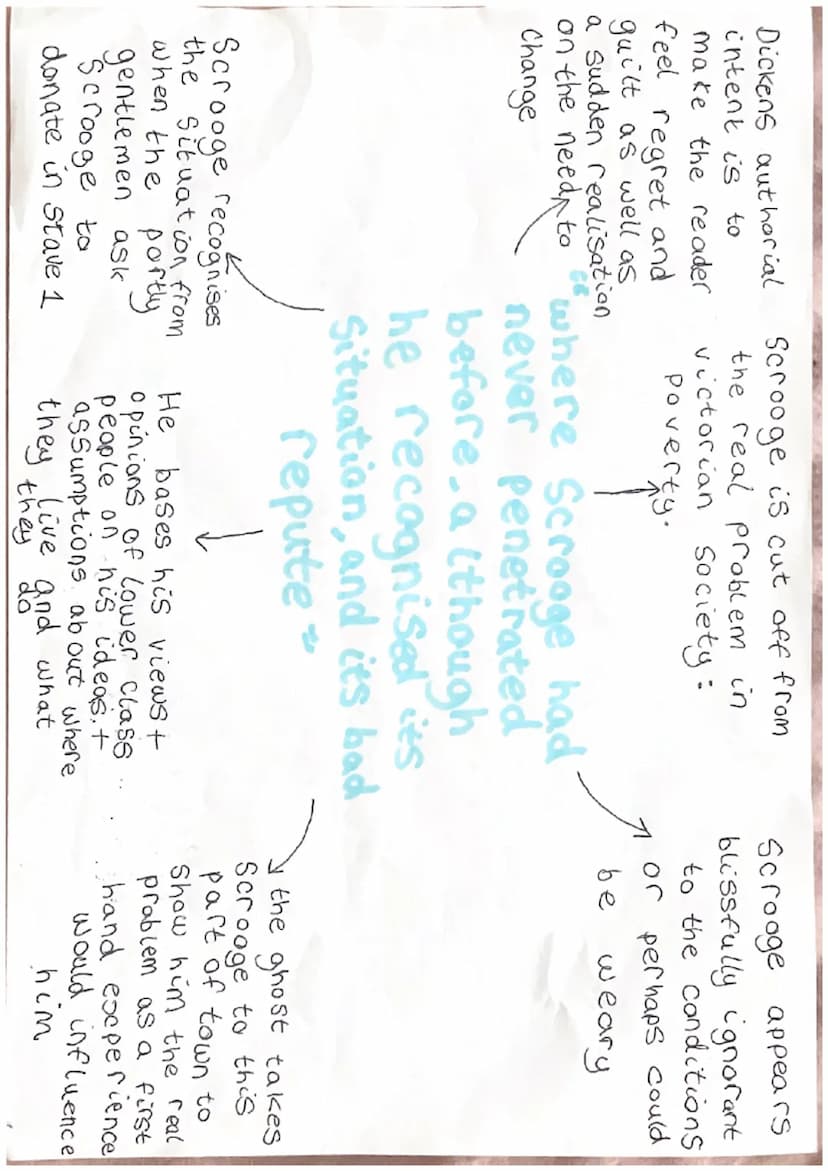 Dickens authorial
intent is to
make the reader
feel regret and
guilt as well as
a sudden realisation
on the need to
change
Scrooge is cut off from
the real problem in
victorian society:
poverty.
Scrooge appears
blissfully ignorant
to the conditions
or perhaps could
be weary
"where Scrooge had
never penetrated
before, although
he recognised its
situation, and its bad
repute"
Scrooge recognises
the situation from
when the portly
gentlemen ask
Scrooge to
donate in Stave 1
He bases his views +
opinions of lower class
people on his ideas +
assumptions about where
they live and what
they do
the ghost takes
Scrooge to this
part of town to
show him the real
problem as a first
hand experience
would influence
him